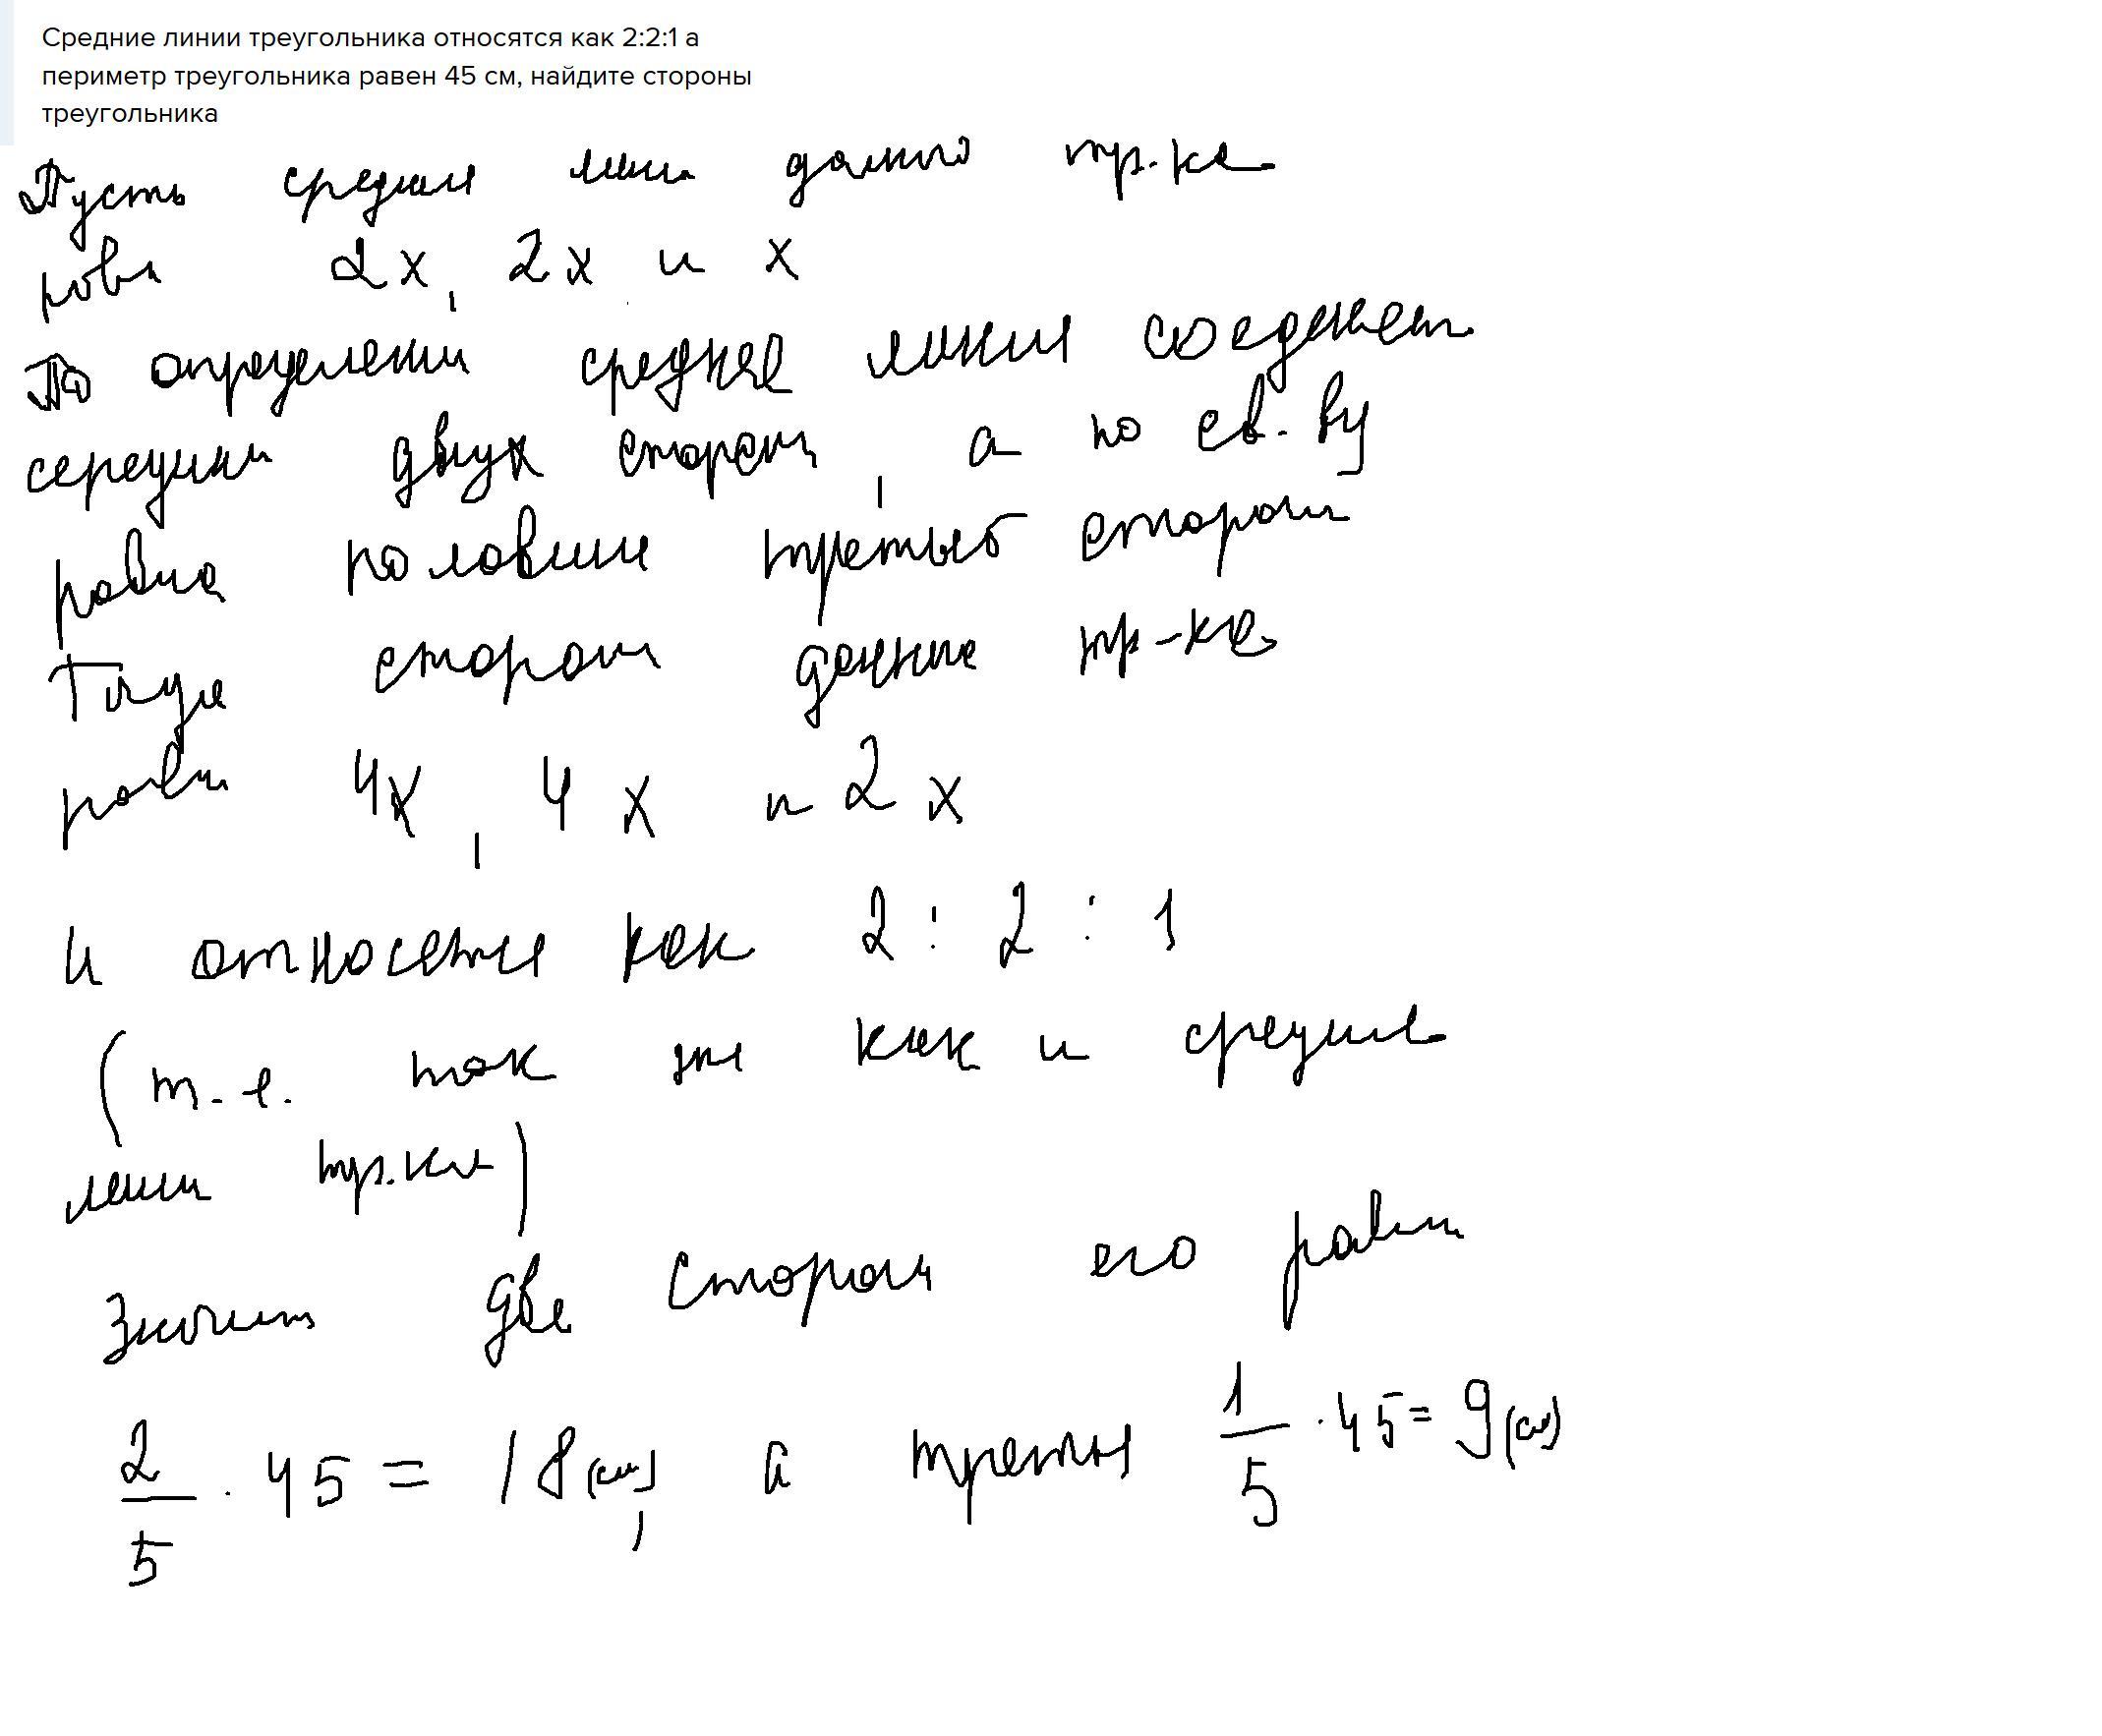 Средние линии треугольника относятся как 2:2:1 а
периметр треугольника равен 45 см, найдите стороны
треугольника
Пусть средние линии данного тр.ка
равны 2x, 2x и x
По определению средняя линия соединяет
середины двух сторон, а по св-ву
равна половине третьей стороны
Тогда стороны данные тр-ка
равны 4x, 4x и 2x
и относятся как 2 : 2 : 1
(т.е. так же как и средние
линии тр.ка)
Значит две стороны его равны
2/5 · 45 = 18 (см), а третья 1/5 · 45 = 9 (см)